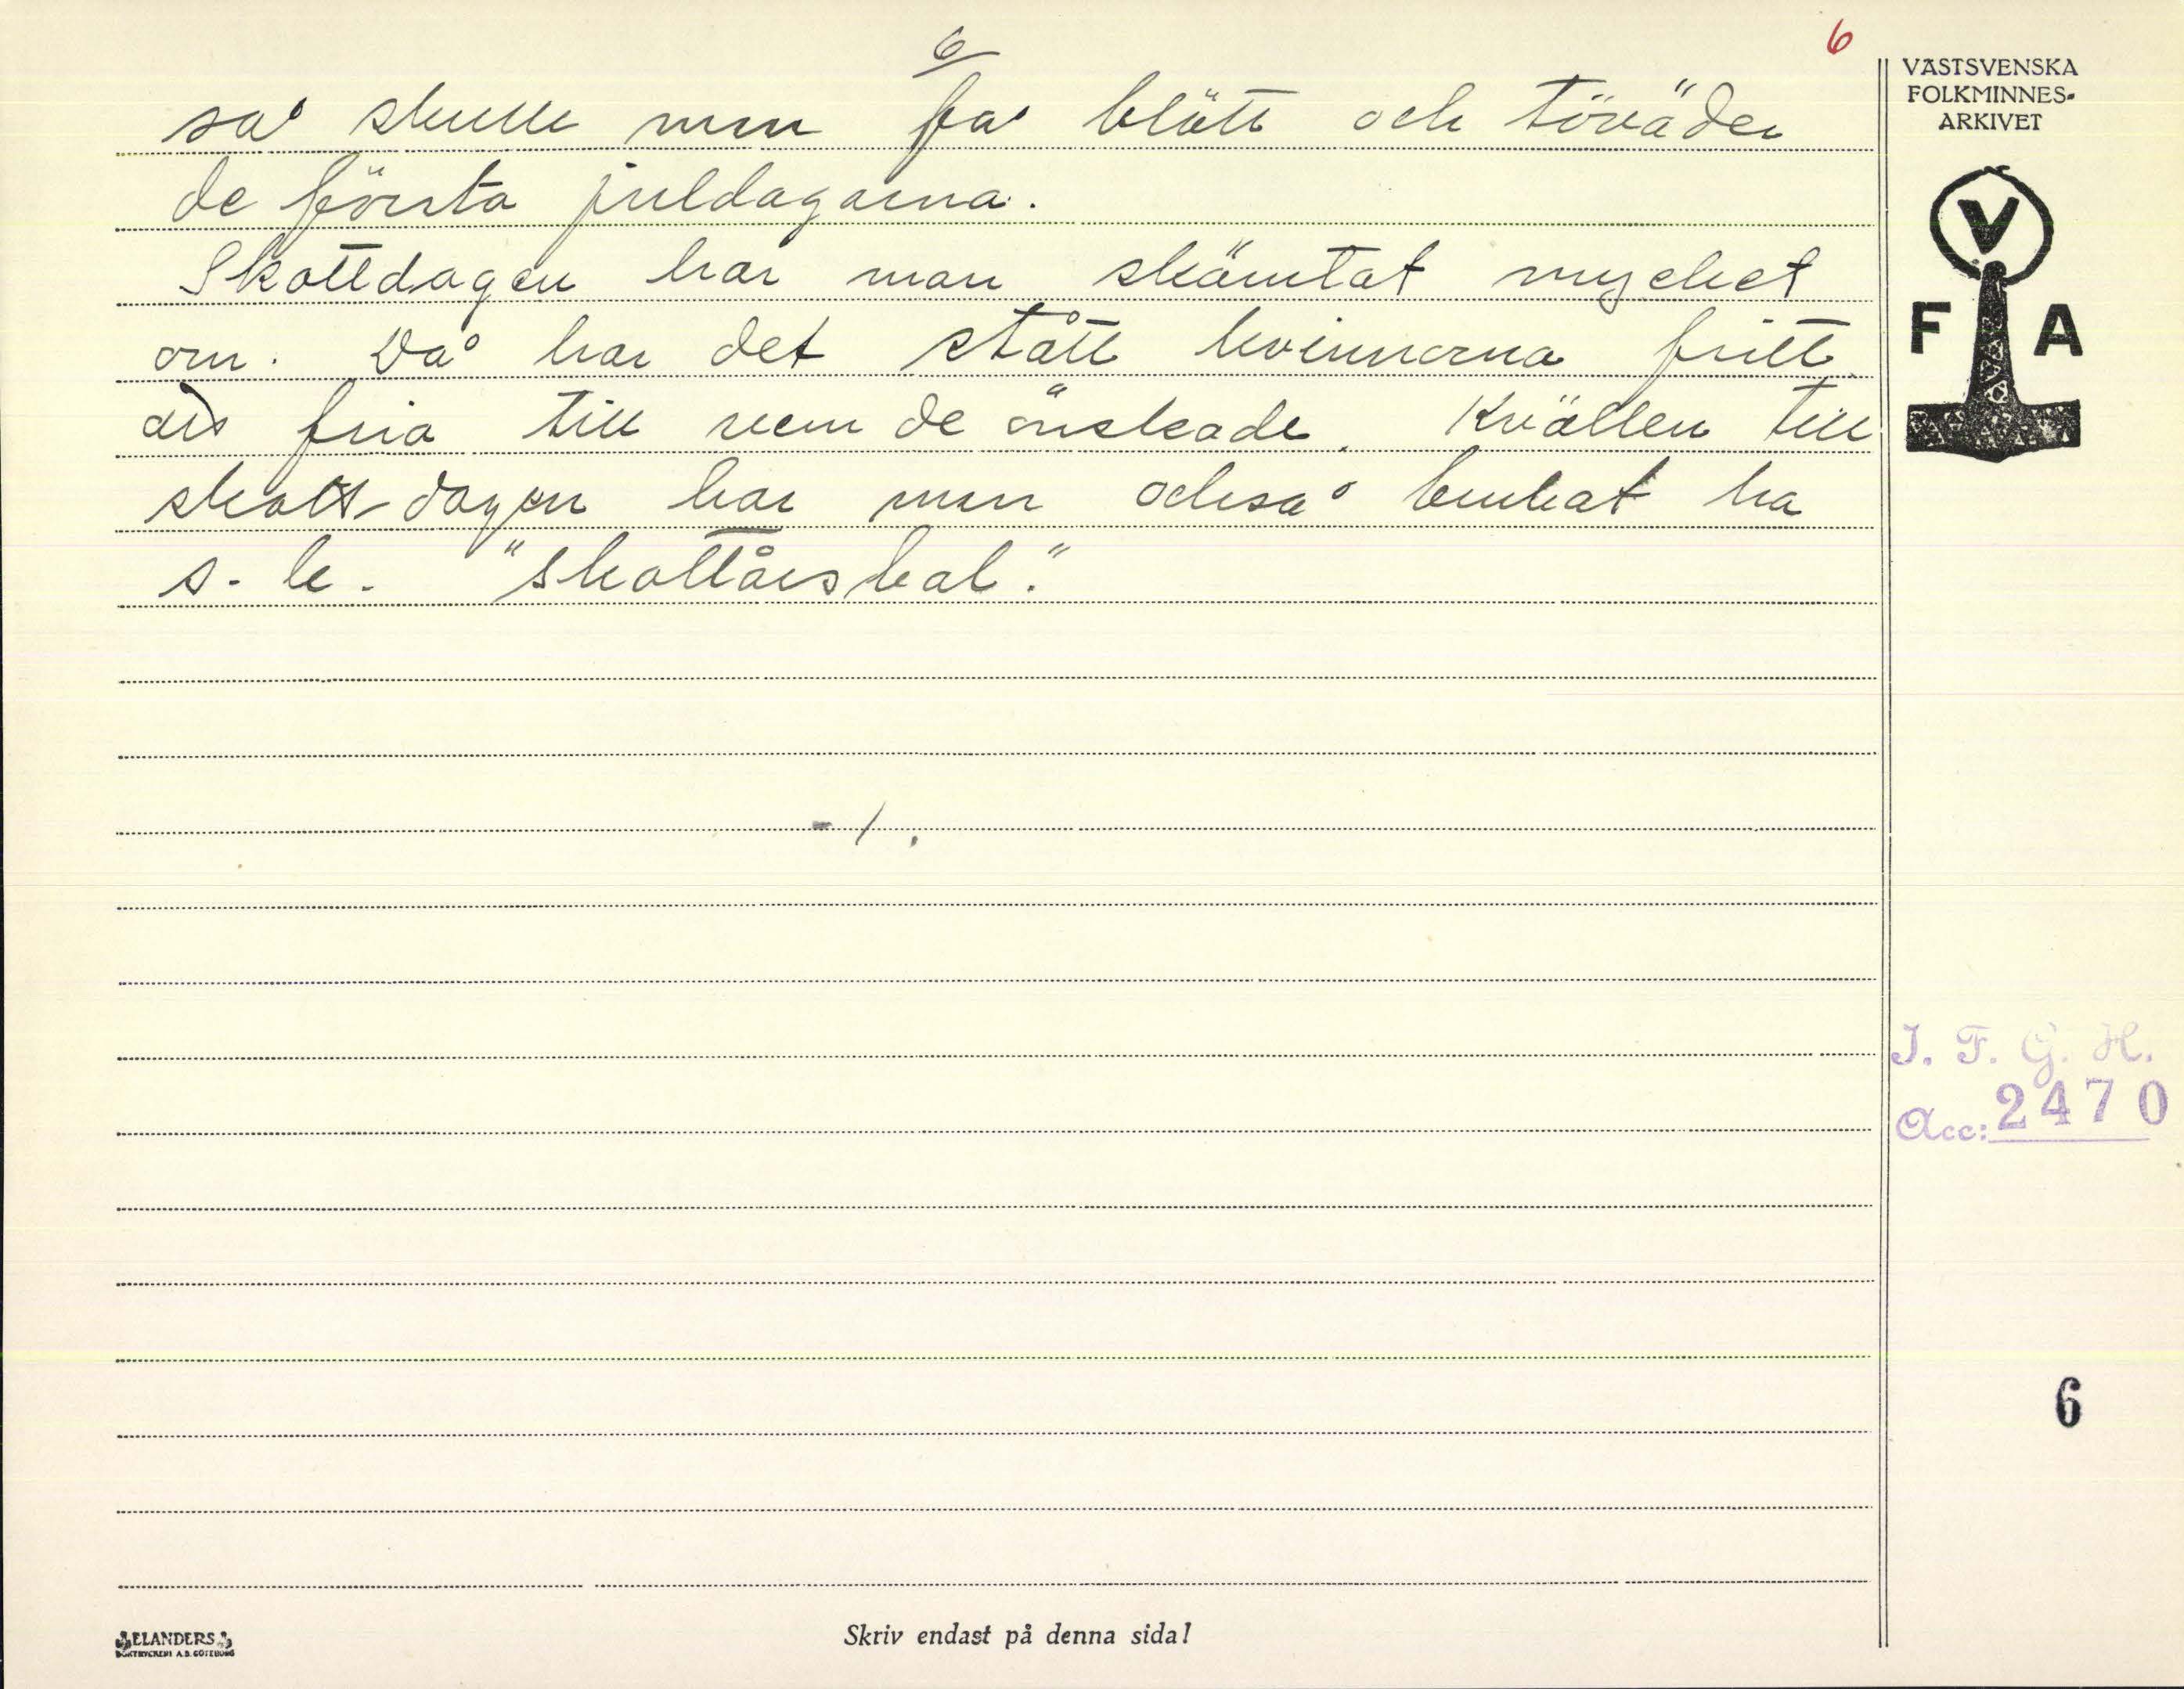 6
6
så skulle man få blött och töväder
de första juldagarna.
Skottdagen har man skämtat mycket
om. Då har det stått kvinnorna fritt
att fria till vem de önskade. Kvällen till
skottdagen har man också brukat ha
s. k. "skottårsbal".
VÄSTSVENSKA
FOLKMINNES-
ARKIVET
V
F A
I. F. G. H.
Acc: 2470
6
ELANDERS
BOKTRYCKERI A.B. GÖTEBORG
Skriv endast på denna sida!